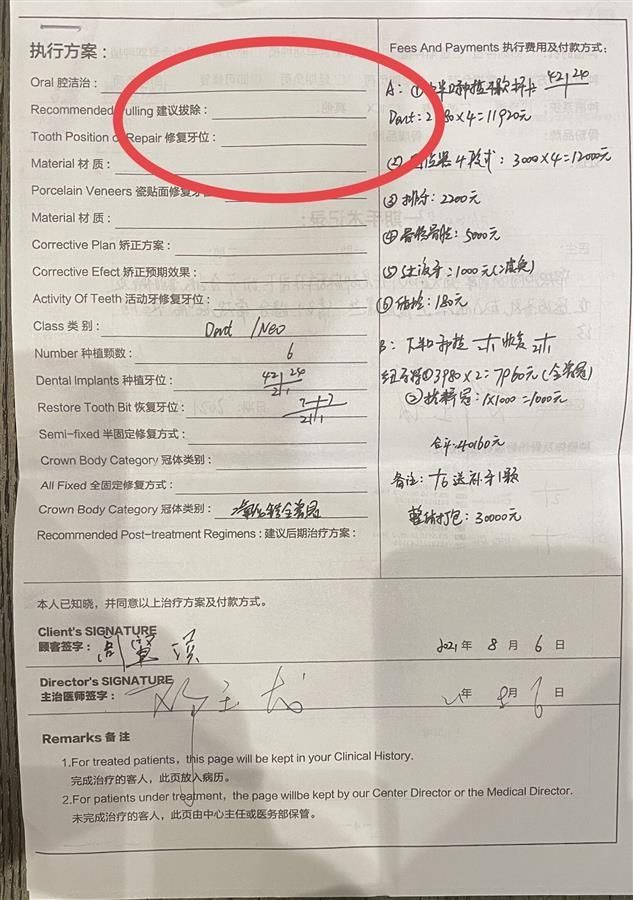 执行方案：
Oral 腔洁治：
Recommended Pulling 建议拔除：
Tooth Position of Repair 修复牙位：
Material 材 质：
Porcelain Veneers 瓷贴面修复牙位：
Material 材 质：
Corrective Plan 矫正方案：
Corrective Efect 矫正预期效果：
Activity Of Teeth 活动牙修复牙位：
Class 类 别： Dent /Neo
Number 种植颗数： 6
Dental Implants 种植牙位： 42 24 21
Restore Tooth Bit 恢复牙位： 7 7 21
Semi-fixed 半固定修复方式：
Crown Body Category 冠体类别：
All Fixed 全固定修复方式：
Crown Body Category 冠体类别：
Recommended Post-treatment Regimens：建议后期治疗方案：
Fees And Payments 执行费用及付款方式：
A： ① 上半口种植 42 24
Dent：2980×4=11920元
② 4 3000×4=12000元
③ 2200元
④ 骨粉骨胶：5000元
⑤ =1000元
⑥ 180元
B： 下半口种植 恢复
①3980×2=7960元(全瓷冠)
② 1×1000=1000元
合计：40160元
备注： 送补牙1颗
整体打包：30000元
本人已知晓，并同意以上治疗方案及付款方式。
Client's SIGNATURE
顾客签字： 2021 年 8 月 6 日
Director's SIGNATURE
主治医师签字： 年 8 月 6 日
Remarks 备 注
1.For treated patients，this page will be kept in your Clinical History.
完成治疗的客人，此页放入病历。
2.For patients under treatment，the page willbe kept by our Center Director or the Medical Director.
未完成治疗的客人，此页由中心主任或医务部保管。